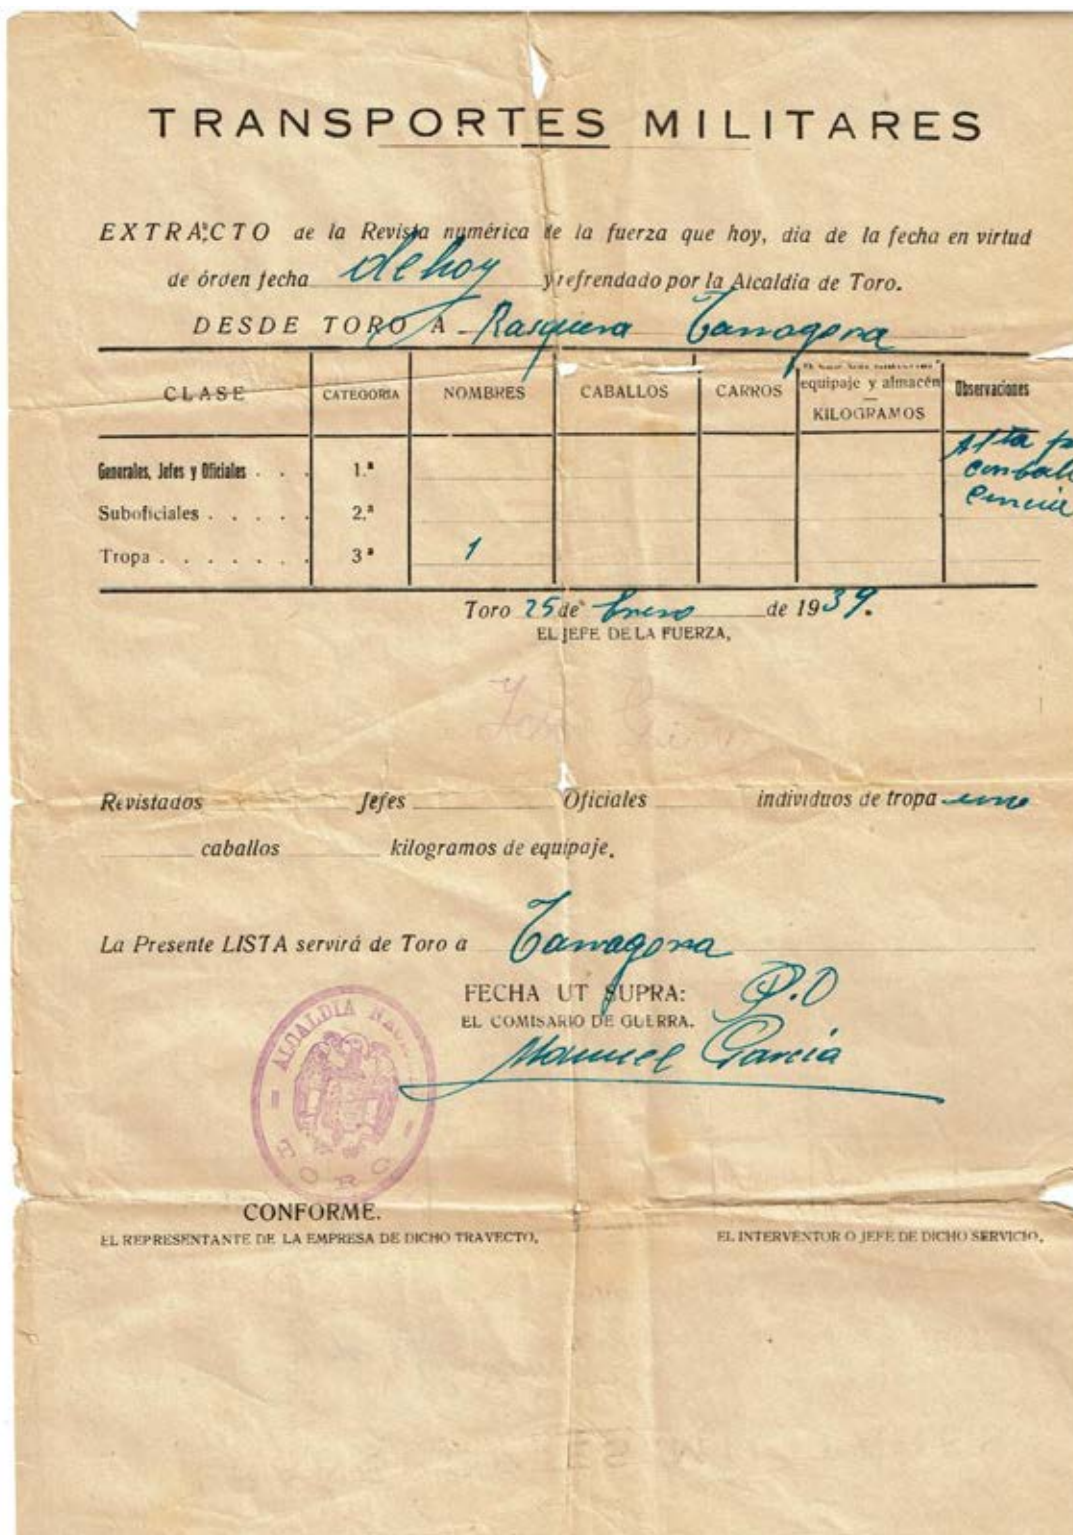 TRANSPORTES MILITARES
EXTRACTO de la Revista numérica de la fuerza que hoy, dia de la fecha en virtud
de órden fecha de hoy y refrendado por la Alcaldía de Toro.
DESDE TORO A Rasquera Tarragona
CLASE CATEGORIA NOMBRES CABALLOS CARROS equipaje y almacén KILOGRAMOS Observaciones
Alta
Generales, Jefes y Oficiales . . . 1.ª
Suboficiales . . . . . 2.ª
Tropa . . . . . . . 3ª 1
Toro 25 de Enero de 1939.
EL JEFE DE LA FUERZA,
Revistados Jefes Oficiales individuos de tropa uno
caballos kilogramos de equipaje.
La Presente LISTA servirá de Toro a Tarragona
FECHA UT SUPRA: P.O
EL COMISARIO DE GUERRA.
Manuel García
ALCALDIA
TORO
CONFORME.
EL REPRESENTANTE DE LA EMPRESA DE DICHO TRAYECTO,
EL INTERVENTOR O JEFE DE DICHO SERVICIO,